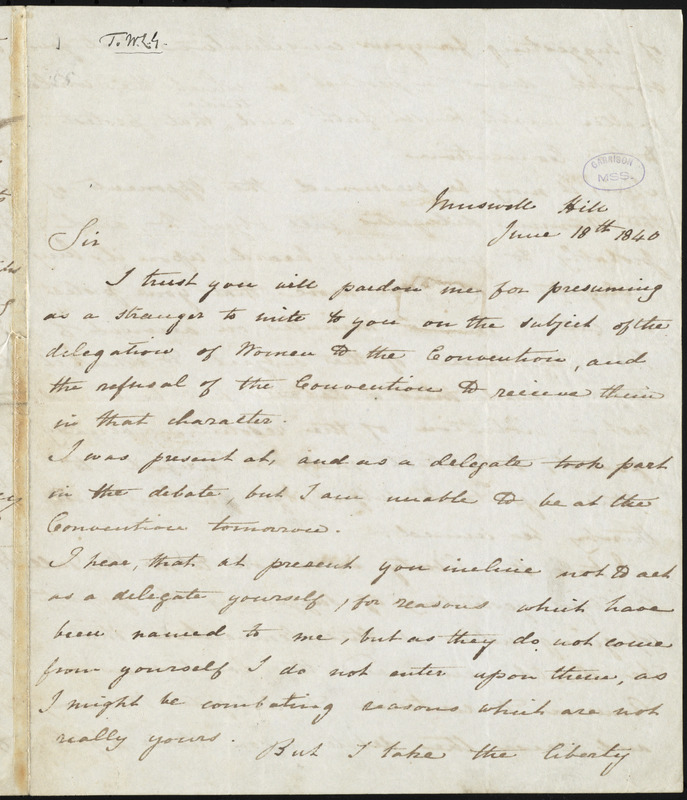 T. W.L.G.
GARRISON
MSS.
Muswell Hill
June 18th 1840
Sir
I trust you will pardon me for presuming
as a stranger to write to you on the subject of the
delegation of Women to the Convention, and
the refusal of the Convention to receive them
in that character.
I was present at, and as a delegate took part
in the debate, but I am unable to be at the
Convention tomorrow.
I hear, that at present you incline not to act
as a delegate yourself, for reasons which have
been named to me, but as they do not come
from yourself I do not enter upon them, as
I might be combating reasons which are not
really yours. But I take the liberty